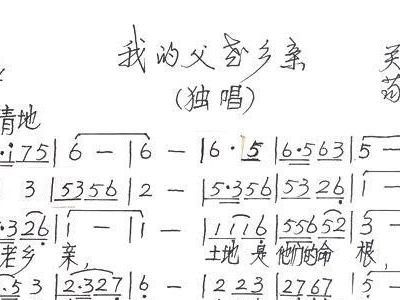 我的父老乡亲
(独唱)
情地
·i75|6 - |6 - |6·5|6·563|5 -
3|5356|2 - |5·356|5326|1 -
·326|1 - |1 - |1116|55652|3 -
老乡 亲, 土地是 他们的命 根,
·53|2·327|6 - |223|2767|5 -